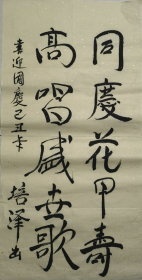 同慶花甲壽
高唱盛世歌
喜迎國慶己丑年
培澤書